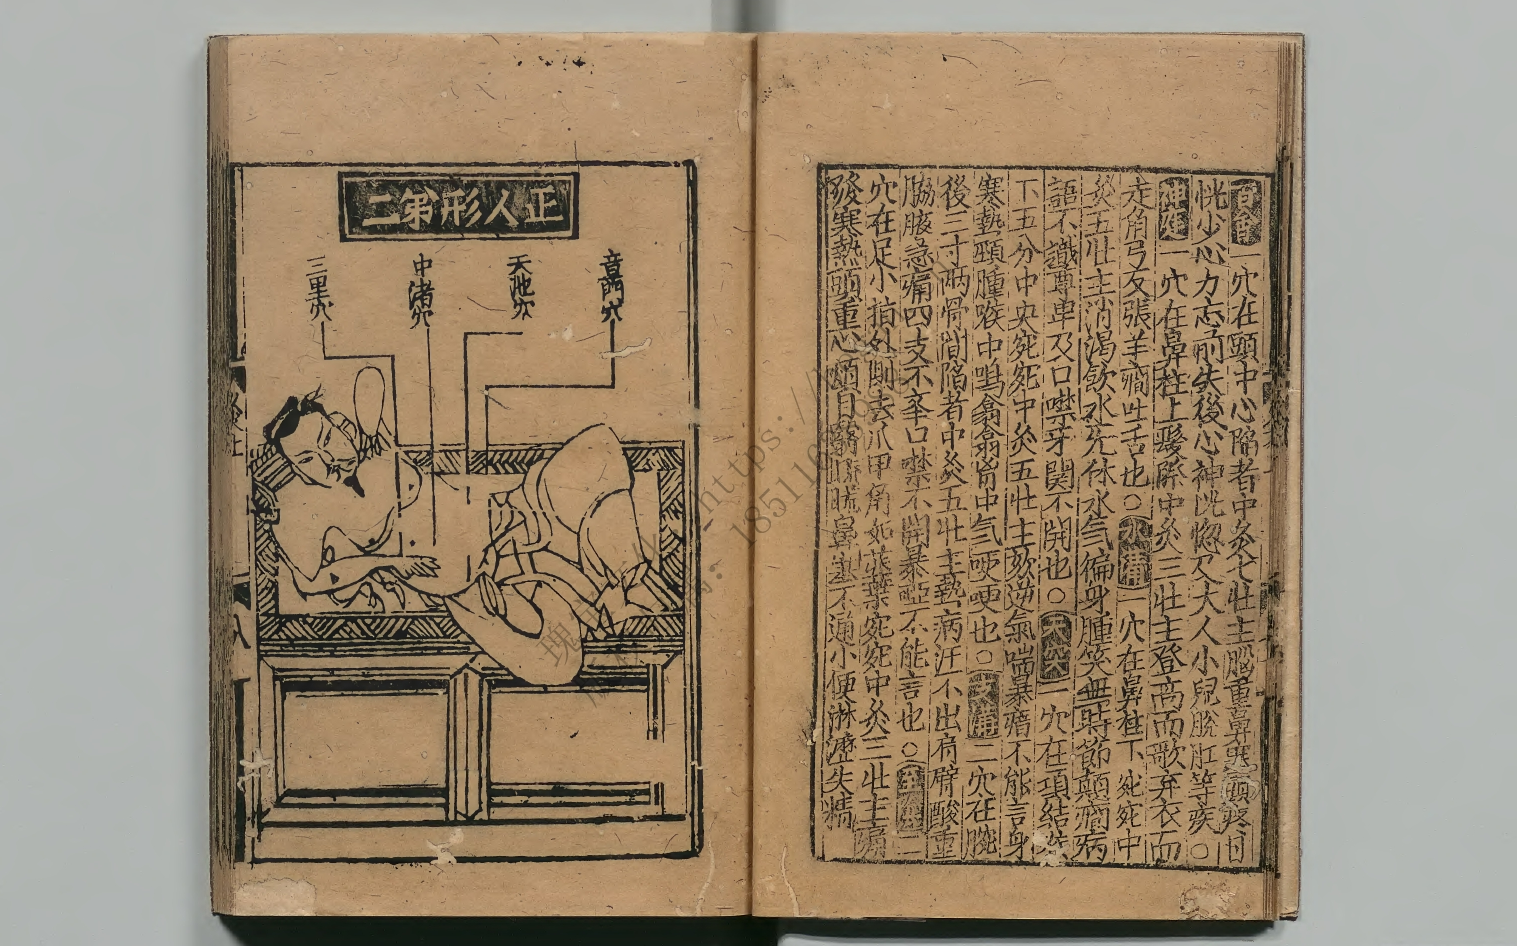 百會一穴在頭中心陷者中灸七壯主腦重鼻塞頭疼目
恍少心力忘前失後心神恍惚及大人小兒脫肛等疾○
神庭一穴在鼻柱上髮際中灸三壯主登高而歌弃衣而
走角弓反張羊癎吐舌也○水溝一穴在鼻柱下宛宛中
灸五壯主消渴飲水无休水气偏身腫笑無時節癲癎病
語不識尊卑及口噤牙関不開也○天突一穴在項結喉
下五分中央宛宛中灸五壯主欬逆氣喘暴瘖不能言身
寒熱頸腫喉中鳴翕翕胷中气哽哽也○支溝二穴在腕
後三寸兩骨間陷者中灸五壯主熱病汗不出肩臂酸重
脇腋急痛四支不牽口噤不開暴啞不能言也○二
穴在足小指外側去爪甲角如韭葉宛宛中灸三壯主
發寒熱頭重心煩目翳䀮䀮鼻塞不通小便淋瀝失精
正人形第二
章門穴
天池穴
中渚穴
三里穴